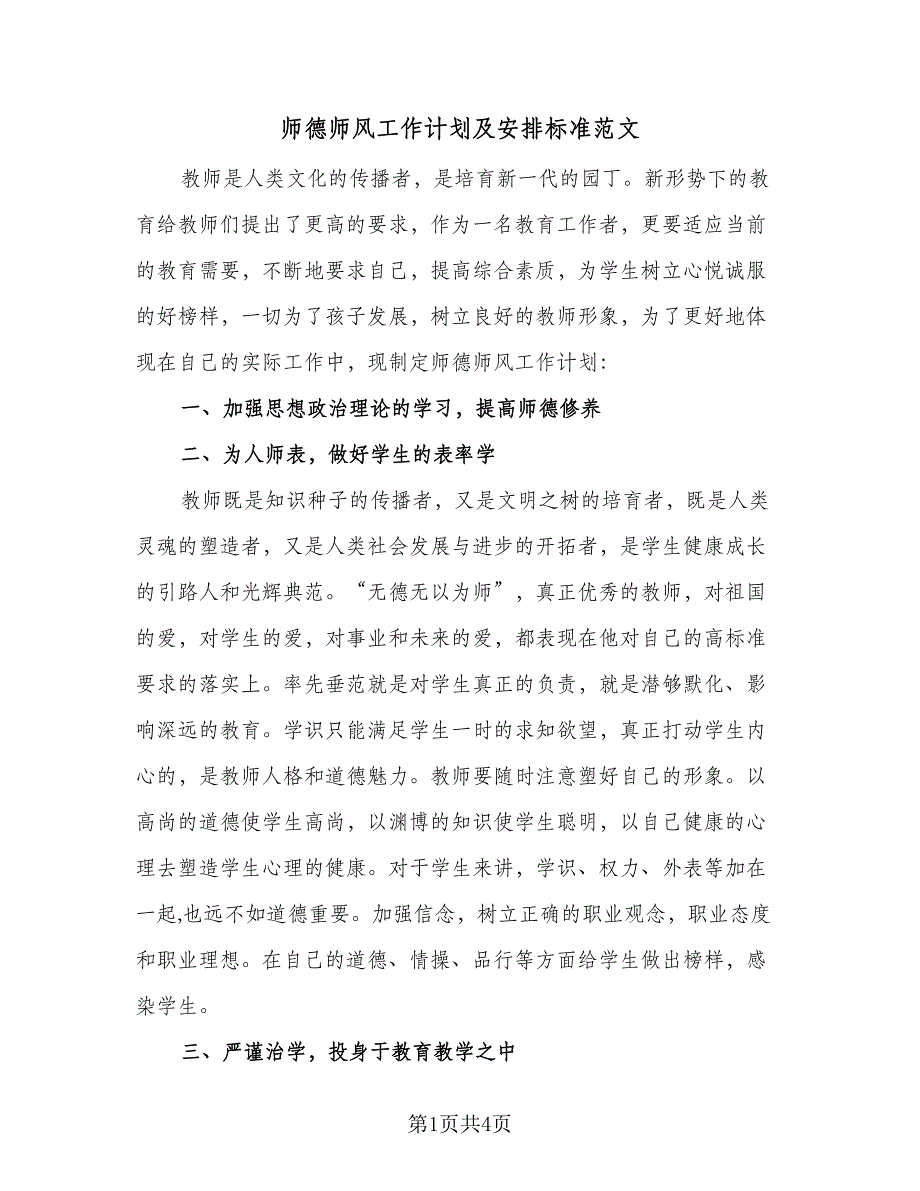 师德师风工作计划及安排标准范文
教师是人类文化的传播者，是培育新一代的园丁。新形势下的教
育给教师们提出了更高的要求，作为一名教育工作者，更要适应当前
的教育需要，不断地要求自己，提高综合素质，为学生树立心悦诚服
的好榜样，一切为了孩子发展，树立良好的教师形象，为了更好地体
现在自己的实际工作中，现制定师德师风工作计划：
一、加强思想政治理论的学习，提高师德修养
二、为人师表，做好学生的表率学
教师既是知识种子的传播者，又是文明之树的培育者，既是人类
灵魂的塑造者，又是人类社会发展与进步的开拓者，是学生健康成长
的引路人和光辉典范。“无德无以为师”，真正优秀的教师，对祖国
的爱，对学生的爱，对事业和未来的爱，都表现在他对自己的高标准
要求的落实上。率先垂范就是对学生真正的负责，就是潜够默化、影
响深远的教育。学识只能满足学生一时的求知欲望，真正打动学生内
心的，是教师人格和道德魅力。教师要随时注意塑好自己的形象。以
高尚的道德使学生高尚，以渊博的知识使学生聪明，以自己健康的心
理去塑造学生心理的健康。对于学生来讲，学识、权力、外表等加在
一起,也远不如道德重要。加强信念，树立正确的职业观念，职业态度
和职业理想。在自己的道德、情操、品行等方面给学生做出榜样，感
染学生。
三、严谨治学，投身于教育教学之中
第1页共4页